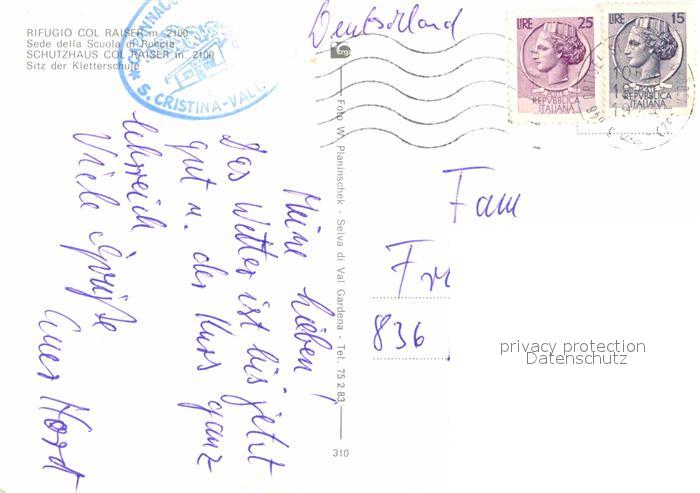 RIFUGIO COL RAISER m. 2100
Sede della Scuola di Roccia
SCHUTZHAUS COL RAISER m. 2100
Sitz der Kletterschule
S. CRISTINA-VAL
Deutschland
LIRE 25
REPVBBLICA
ITALIANA
LIRE 15
REPVBBLICA
ITALIANA
Foto W. Planinschek - Selva di Val Gardena - Tel. 75 2 83
310
Meine Lieben!
Das Wetter ist bis jetzt
gut u. der Kurs ganz
lehrreich
Viele Grüße
Euer Horst
Fam
Fr
836
privacy protection
Datenschutz